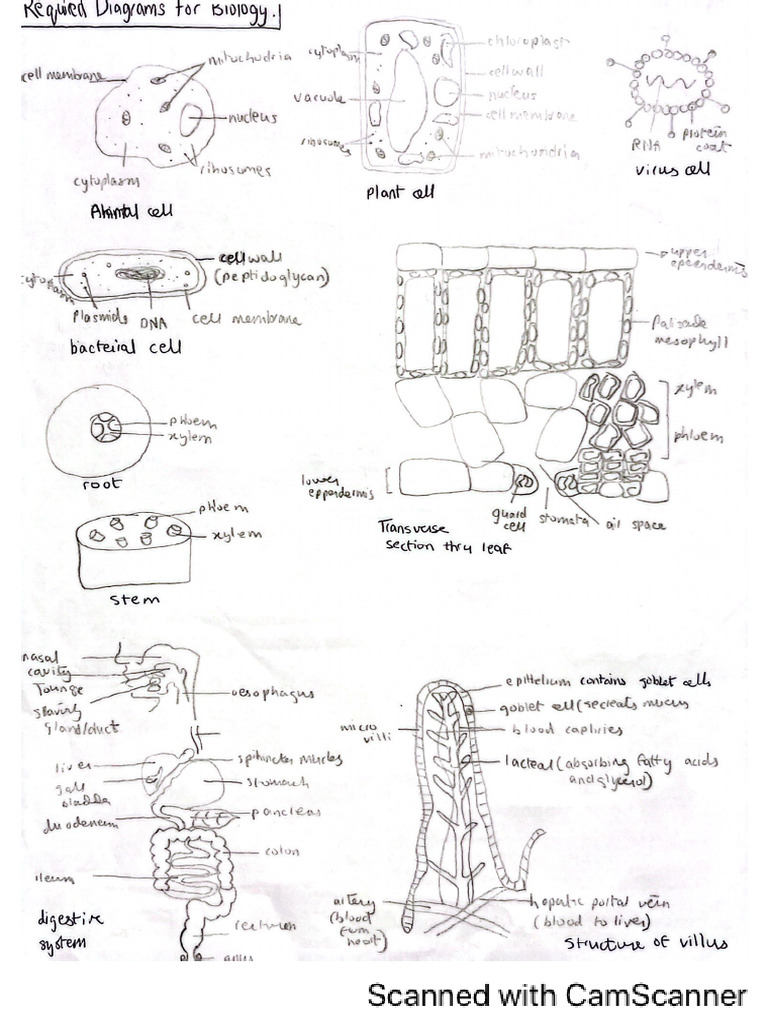 Required Diagrams for Biology.
cell membrane
mitochndria
nucleus
ribosomes
cytoplasm
Animal cell
cytoplasm
vacuole
ribosomes
chloroplast
cell wall
nucleus
cell membrane
mitochondria
Plant cell
RNA
protein
coat
virus cell
cytoplasm
cell wall
(peptidoglycan)
Plasmids
DNA
cell membrane
bacterial cell
upper
eppendermis
Palisade
mesophyll
xylem
phloem
lower
eppendermis
guard
cell
stomata
air space
Transverse
section thru leaf
phloem
xylem
root
phloem
xylem
stem
nasal
cavity
Tounge
gland/duct
oesophagus
liver
gall
bladder
sphincter muscles
stomach
pancreas
duodenum
colon
ileum
rectum
anus
digestive
system
epithelium contains goblet cells
goblet cell (secreats mucus
blood caplries
lacteal (absorbing fatty acids
and glycerol)
micro
villi
artery
(blood
from
heart)
hepatic portal vein
(blood to liver)
structure of villus
Scanned with CamScanner